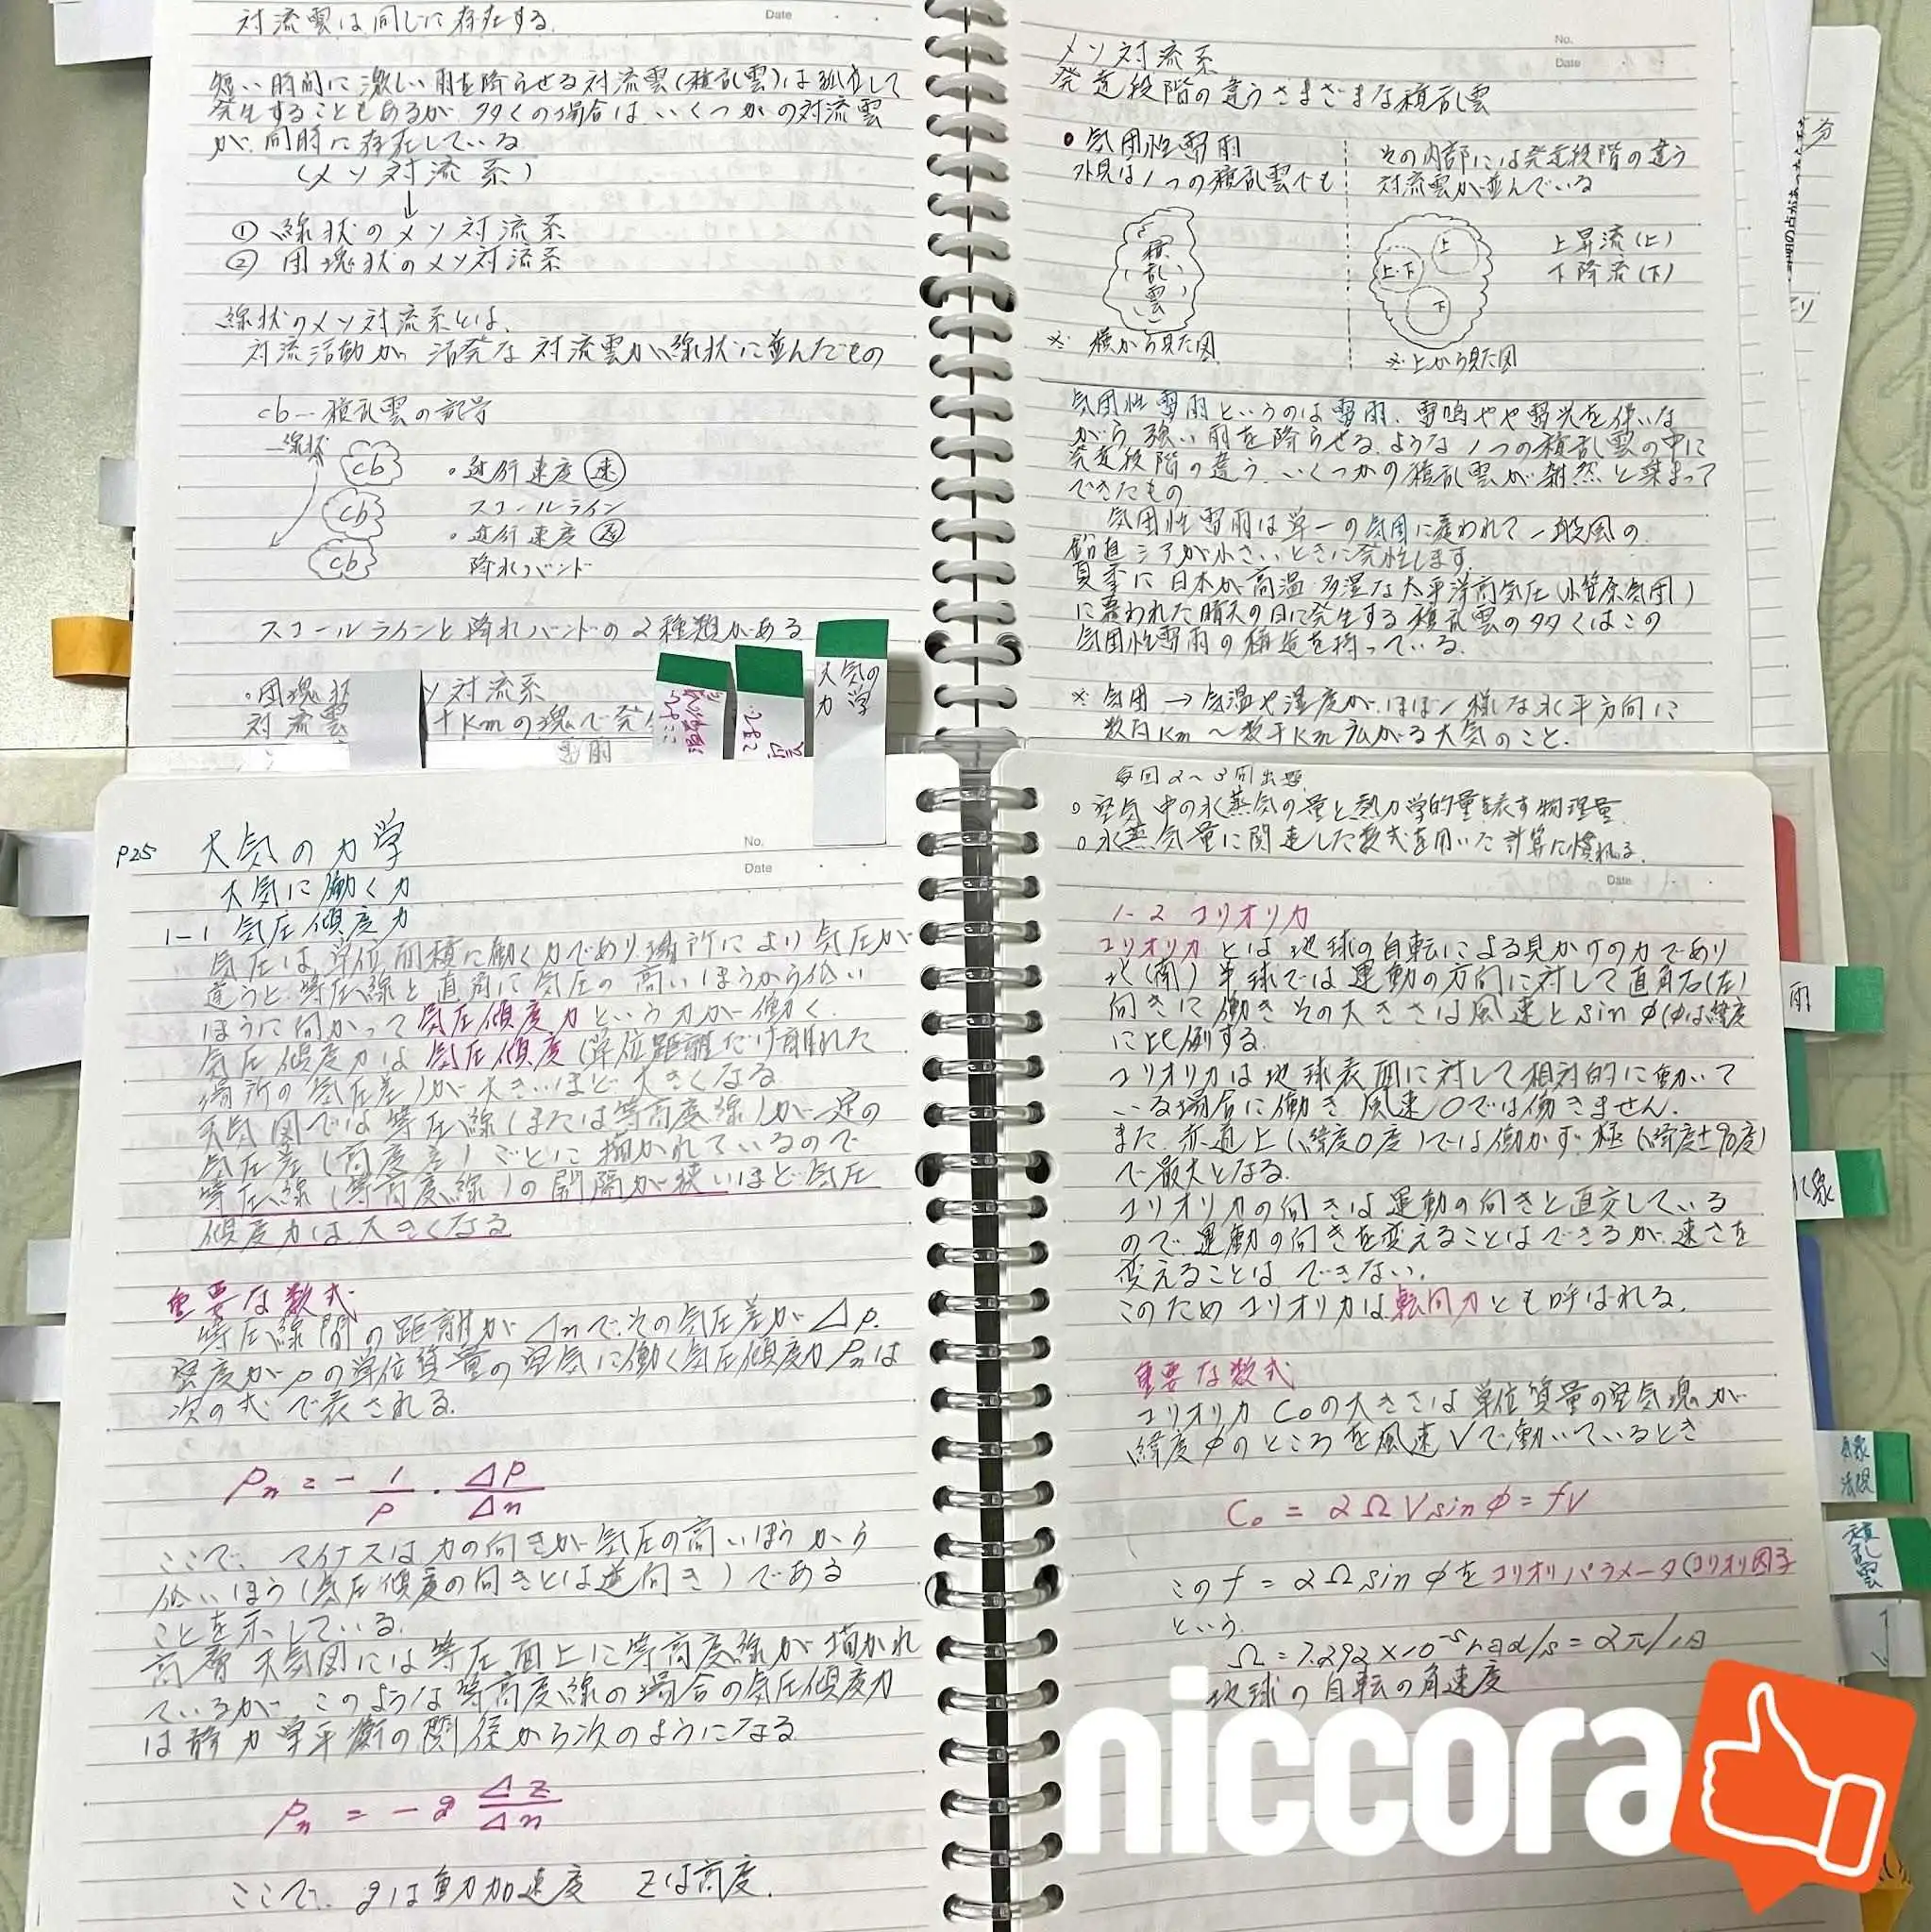 対流雲は同じに存在する.
Date
短い時間に激しい雨を降らせる対流雲(積乱雲)は孤立して
発生することもあるが 多くの場合は、いくつかの対流雲
が 同時に存在している
(メソ対流系)
↓
① 線状のメソ対流系
② 団塊状のメソ対流系
線状のメソ対流系とは、
対流活動が 活発な 対流雲が線状に並んだもの
cb—積乱雲の記号
線状
cb
cb
cb
・進行速度 速
スコールライン
・進行速度
降水バンド
スコールラインと降水バンドの2種類がある
・団塊状 メソ対流系
対流雲 十Kmの塊で発
雷雨
大気の
力学
No.
Date
メソ対流系
発達段階の違うさまざまな積乱雲
・気団性雷雨
外見は1つの積乱雲でも
その内部には発達段階の違う
対流雲が並んでいる
積乱雲
上
上.下
下
上昇流(上)
下降流(下)
※ 横から見た図
※ 上から見た図
気団性雷雨というのは雷雨、雷鳴やや雷光を伴いな
がら 強い雨を降らせる、ような1つの積乱雲の中に
発達段階の違う、いくつかの積乱雲が雑然と集まって
できたもの
気団性雷雨は単一の気団に覆われて一般風の
鉛直シアが小さいときに発生します.
夏季に日本が高温多湿な太平洋高気圧(小笠原気団)
に覆われた晴天の日に発生する積乱雲の多くはこの
気団性雷雨の構造を持っている.
※ 気団 → 気温や湿度が、ほぼ一様な水平方向に
数百Km〜数千Km広がる大気のこと.
P25 大気の力学
No.
Date
大気に働く力
1-1 気圧傾度力
気圧は単位面積に働く力であり場所により気圧が
違うと、等圧線と直角に気圧の高いほうから低い
ほうに向かって気圧傾度力という力が働く.
気圧傾度力は気圧傾度(単位距離だけ離れた
場所の気圧差)が大きいほど大きくなる
天気図では等圧線(または等高度線)が一定の
気圧差(高度差)ごとに描かれているので
等圧線(等高度線)の間隔が狭いほど気圧
傾度力は大きくなる
重要な数式
等圧線間の距離がΔnで、その気圧差がΔp.
密度がρの単位質量の空気に働く気圧傾度力Pnは
次の式で表される.
Pn = - 1/ρ・Δp/Δn
ここで、マイナスは力の向きが気圧の高いほうから
低いほう(気圧傾度の向きとは逆向き)である
ことを示している.
高層天気図には等圧面上に等高度線が描かれ
ているが、このような等高度線の場合の気圧傾度力
は静力学平衡の関係から次のようになる
Pn = - g Δz/Δn
ここで、gは重力加速度 Zは高度.
毎回2〜3問出題
○空気中の水蒸気の量と熱力学的量を表す物理量
○水蒸気量に関連した数式を用いた計算に慣れる.
Date
1-2 コリオリ力
コリオリ力とは地球の自転による見かけの力であり
北(南)半球では運動の方向に対して直角右(左)
向きに働きその大きさは風速とsinφ(φは緯度
に比例する.
コリオリ力は地球表面に対して相対的に動いて
いる場合に働き 風速0では働きません.
また 赤道上(緯度0度)では働かず極(緯度±90度)
で最大となる.
コリオリ力の向きは運動の向きと直交している
ので、運動の向きを変えることはできるが、速さを
変えることは できない.
このためコリオリ力は転向力とも呼ばれる.
重要な数式
コリオリ力 Coの大きさは単位質量の空気塊が
緯度φのところを風速Vで動いているとき
Co = 2ΩVsinφ=fV
このf=2Ωsinφをコリオリパラメータ(コリオリ因子
という.
Ω=7.292×10⁻⁵rad/s=2π/1日
地球の自転の角速度
雨
積乱雲
niccora